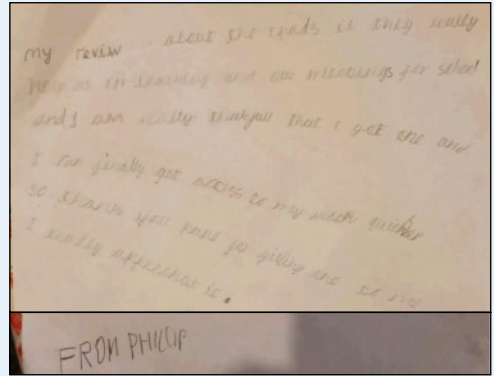 my reviw about the IPads is they really
help us in learning and our meetings for school
and I am really thankfull that I got one and
I can finally get access to my work quicker
so thank you for giving me
I really appreshat it.
FROM PHILLIP